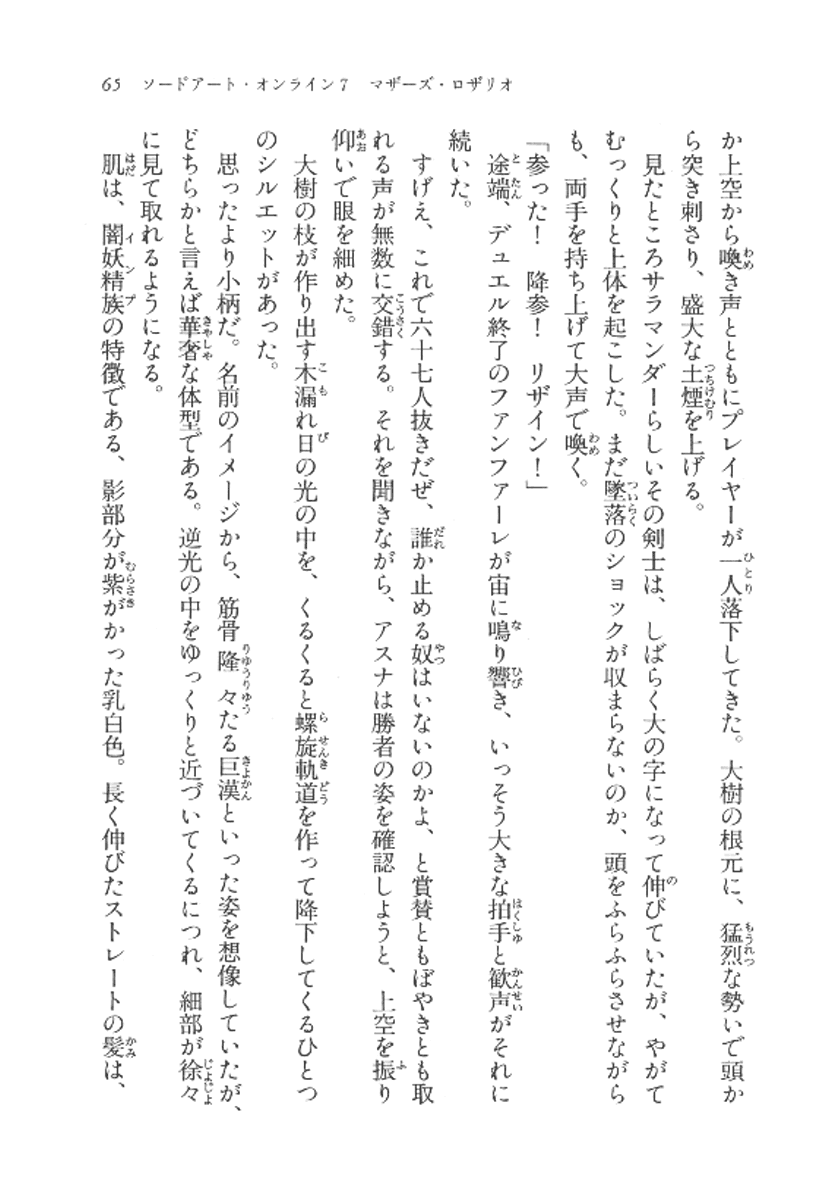 65　ソードアート・オンライン7　マザーズ・ロザリオ
か上空から喚き声とともにプレイヤーが一人落下してきた。大樹の根元に、猛烈な勢いで頭か
ら突き刺さり、盛大な土煙を上げる。
　見たところサラマンダーらしいその剣士は、しばらく大の字になって伸びていたが、やがて
むっくりと上体を起こした。まだ墜落のショックが収まらないのか、頭をふらふらさせながら
も、両手を持ち上げて大声で喚く。
「参った！　降参！　リザイン！」
　途端、デュエル終了のファンファーレが宙に鳴り響き、いっそう大きな拍手と歓声がそれに
続いた。
　すげえ、これで六十七人抜きだぜ、誰か止める奴はいないのかよ、と賞賛ともぼやきとも取
れる声が無数に交錯する。それを聞きながら、アスナは勝者の姿を確認しようと、上空を振り
仰いで眼を細めた。
　大樹の枝が作り出す木漏れ日の光の中を、くるくると螺旋軌道を作って降下してくるひとつ
のシルエットがあった。
　思ったより小柄だ。名前のイメージから、筋骨隆々たる巨漢といった姿を想像していたが、
どちらかと言えば華奢な体型である。逆光の中をゆっくりと近づいてくるにつれ、細部が徐々
に見て取れるようになる。
　肌は、闇妖精族の特徴である、影部分が紫がかった乳白色。長く伸びたストレートの髪は、